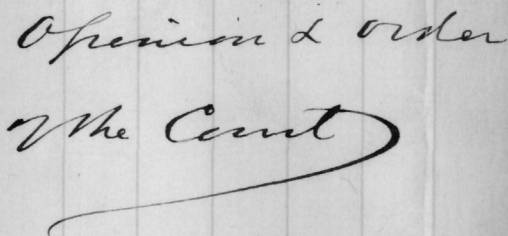 Opinion & order
of the Court